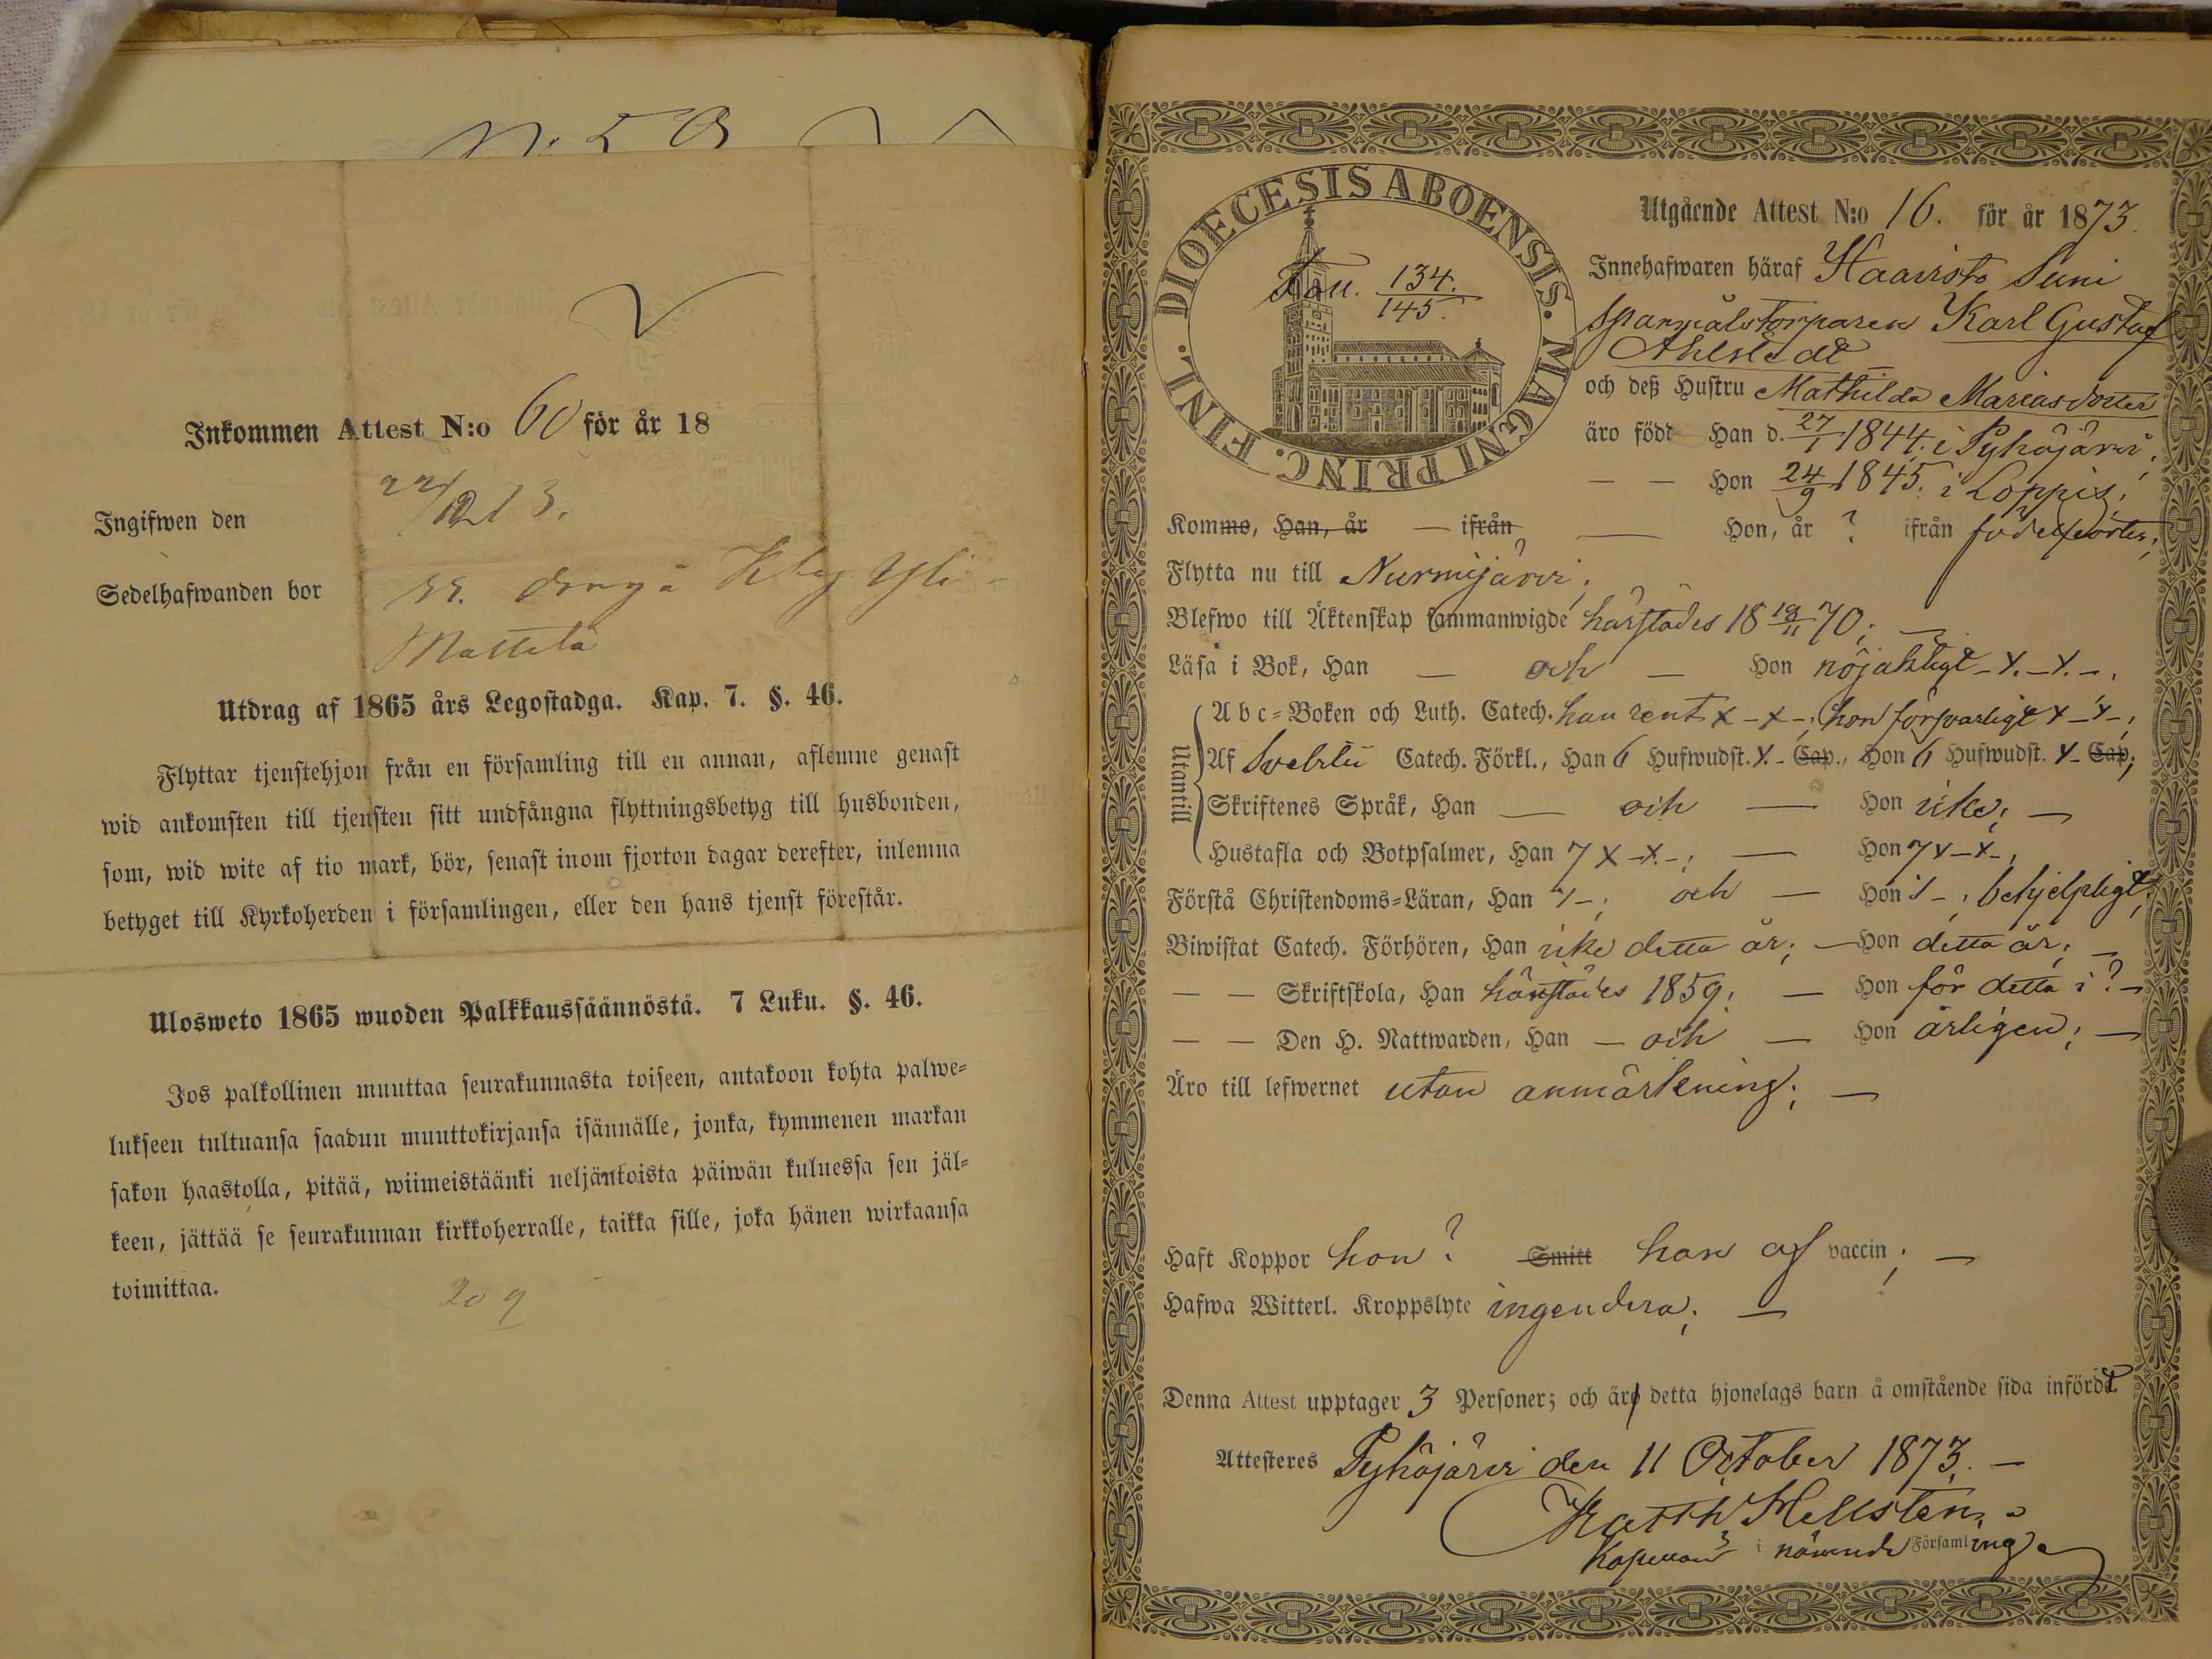 Inkommen Attest N:o 60 för år 18
Ingifwen den
Sedelhafwanden bor
Mattila
Utdrag af 1865 års Legostadga. Kap. 7. §. 46.
Flyttar tjenstehjon från en församling till en annan, aflemne genast
wid ankomsten till tjensten sitt undfångna flyttningsbetyg till husbonden,
som, wid wite af tio mark, bör, senast inom fjorton dagar derefter, inlemna
betyget till Kyrkoherden i församlingen, eller den hans tjenst förestår.
Ulosweto 1865 wuoden Palkkaussäännöstä. 7 Luku. §. 46.
Jos palkollinen muuttaa seurakunnasta toiseen, antakoon kohta palwe-
lukseen tultuansa saadun muuttokirjansa isännälle, jonka, kymmenen markan
sakon haastolla, pitää, wiimeistäänki neljäntoista päiwän kuluessa sen jäl-
keen, jättää se seurakunnan kirkkoherralle, taikka sille, joka hänen wirkaansa
toimittaa.
209
DIOECESIS ABOENSIS. MAGNI PRINC. FINL.
134.
145.
Utgående Attest N:o 16. för år 1873.
Innehafwaren häraf Haavisto Suni
Karl Gustaf
Ahlstedt
och deß Hustru Mathilda Mariasdotter
äro född Han d. 27/1 1844. i Pyhäjärvi;
— — Hon 24/9 1845. i Loppis;
Komme, Han, år — ifrån — Hon, år ? ifrån födelseorten;
Flytta nu till Nurmijärvi;
Blefwo till Äktenskap sammanwigde härstädes 18 18/11 70; —
Läsa i Bok, Han — och — Hon nöjaktigt - x. - x. - .
Utantill
Abc-Boken och Luth. Catech. han rent x - x -; hon försvarligt x - x -;
Af Svebelii Catech. Förkl., Han 6 Hufwudst. x. - Cap., Hon 6 Hufwudst. x - Cap;
Skriftenes Språk, Han — och — Hon icke; —
Hustafla och Botpsalmer, Han 7 x - x. -; — Hon 7 x - x - .
Förstå Christendoms-Läran, Han -; och — Hon - , behjelpligt;
Biwistat Catech. Förhören, Han icke detta år; — Hon detta år; —
— — Skriftskola, Han härstädes 1859; — Hon för detta i ? —
— — Den H. Nattwarden, Han — och — Hon årligen; —
Äro till lefwernet utan anmärkning; —
Haft Koppor hon ? Smitt han af vaccin; —
Hafwa Witterl. Kroppslyte ingendera; —
Denna Attest upptager 3 Personer; och är detta hjonelags barn å omstående sida infördt.
Attesteres Pyhäjärvi den 11 October 1873. —
Matth Hellsten.
Kapellan i nämnde Församling